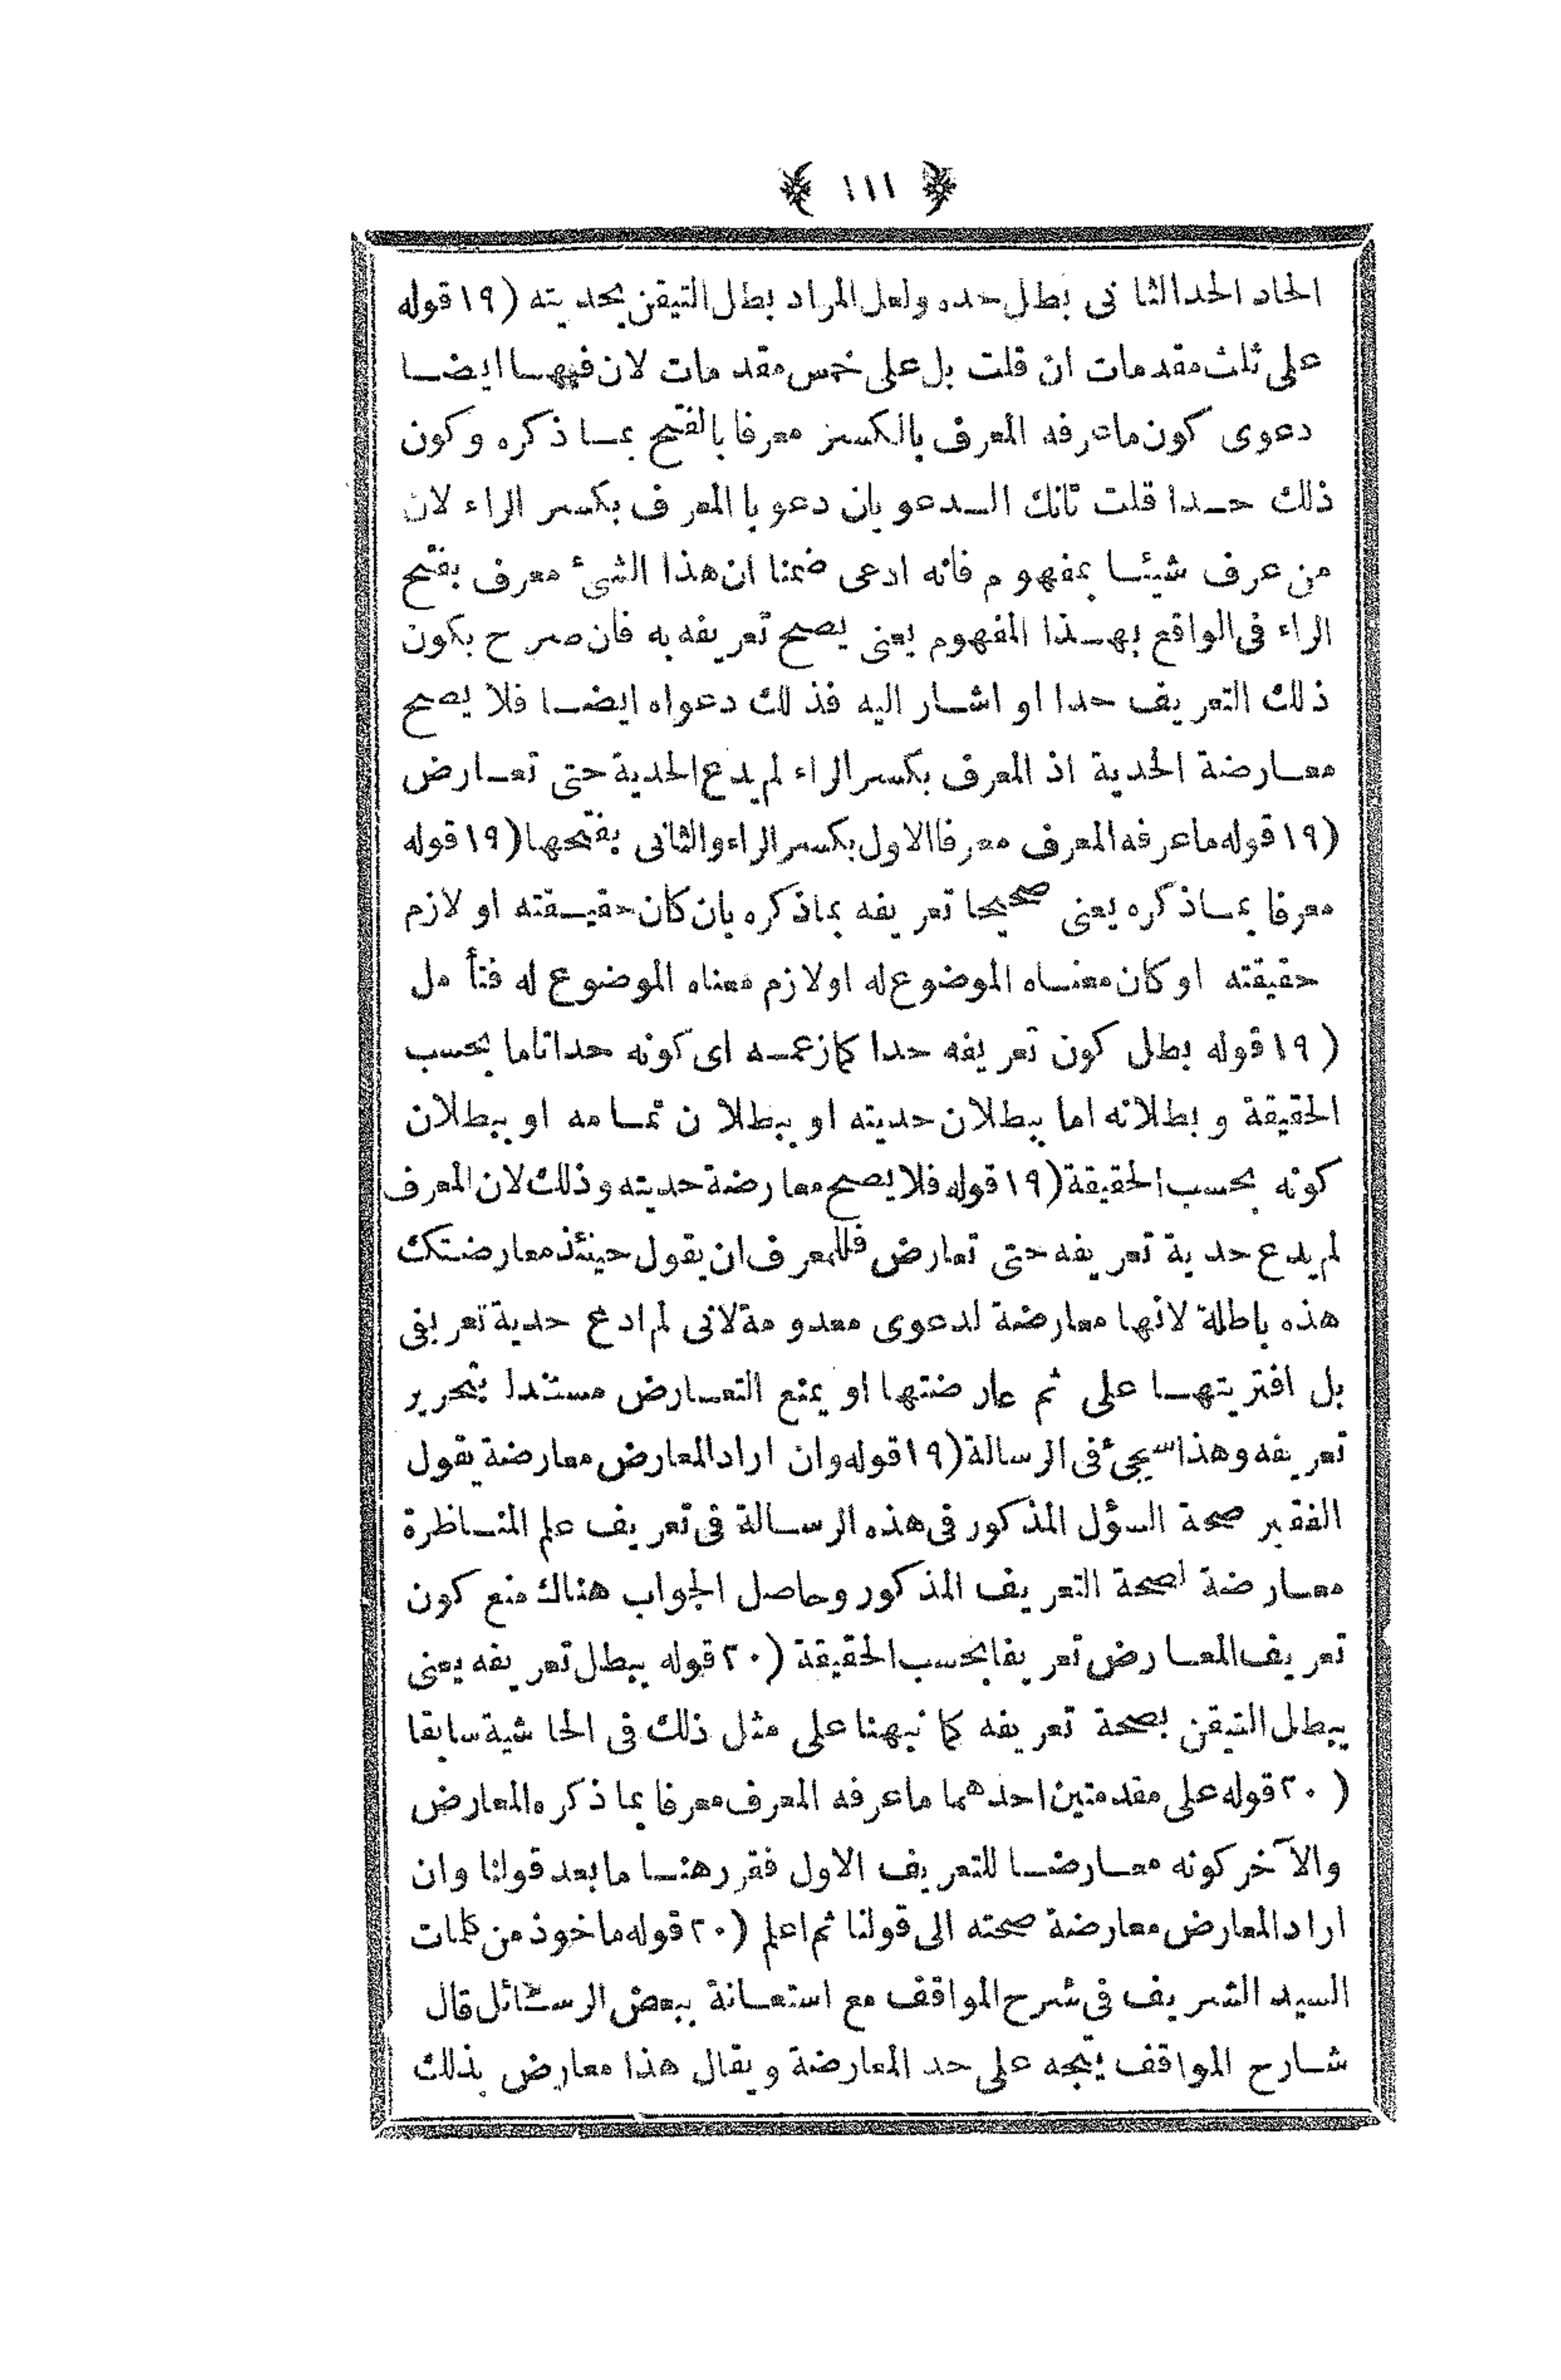 ﴿ ١١١ ﴾
الحاد الحد الثانى بطل حده ولعل المراد بطل التيقن بحديته (١٩ قوله
على ثلث مقدمات ان قلت بل على خمس مقدمات لان فيها ايضا
دعوى كون ماعرفه المعرف بالكسر معرفا بالفتح بما ذكره وكون
ذلك حدا قلت تانك الدعويان دعويا المعرف بكسر الراء لان
من عرف شيئا بمفهوم فانه ادعى ضمنا ان هذا الشئ معرف بفتح
الراء فى الواقع بهذا المفهوم يعنى يصح تعريفه به فان صرح بكون
ذلك التعريف حدا او اشار اليه فذلك دعواه ايضا فلا يصح
معارضة الحدية اذ المعرف بكسر الراء لم يدع الحدية حتى تعارض
(١٩ قوله ماعرفه المعرف معرفا الاول بكسر الراء والثانى بفتحها (١٩ قوله
معرفا بما ذكره يعنى صحيحا تعريفه بماذكره بان كان حقيقته او لازم
حقيقته او كان معناه الموضوع له اولازم معناه الموضوع له فتأمل
(١٩ قوله بطل كون تعريفه حدا كما زعمه اى كونه حدا تاما بحسب
الحقيقة وبطلانه اما ببطلان حديته او ببطلان تمامه او ببطلان
كونه بحسب الحقيقة (١٩ قوله فلا يصح معارضة حديته وذلك لان المعرف
لم يدع حدية تعريفه حتى تعارض فللمعرف ان يقول حينئذ معارضتك
هذه باطلة لانها معارضة لدعوى معدومة لانى لم ادع حدية تعريفى
بل افتريتها على ثم عارضتها او يمنع التعارض مستندا بتحرير
تعريفه وهذا سيجئ فى الرسالة (١٩ قوله وان اراد المعارض معارضة يقول
الفقير صحة السؤل المذكور فى هذه الرسالة فى تعريف علم المناظرة
معارضة لصحة التعريف المذكور وحاصل الجواب هناك منع كون
تعريف المعارض تعريفا بحسب الحقيقة (٢٠ قوله يبطل تعريفه يعنى
يبطل التيقن بصحة تعريفه كما نبهنا على مثل ذلك فى الحاشية سابقا
(٢٠ قوله على مقدمتين احدهما ماعرفه المعرف معرفا بما ذكره المعارض
والآخر كونه معارضا للتعريف الاول فقرر هنا مابعد قولنا وان
اراد المعارض معارضة صحته الى قولنا ثم اعلم (٢٠ قوله ماخوذ من كلمات
السيد الشريف فى شرح المواقف مع استعانة ببعض الرسائل قال
شارح المواقف يتجه على حد المعارضة ويقال هذا معارض بذلك